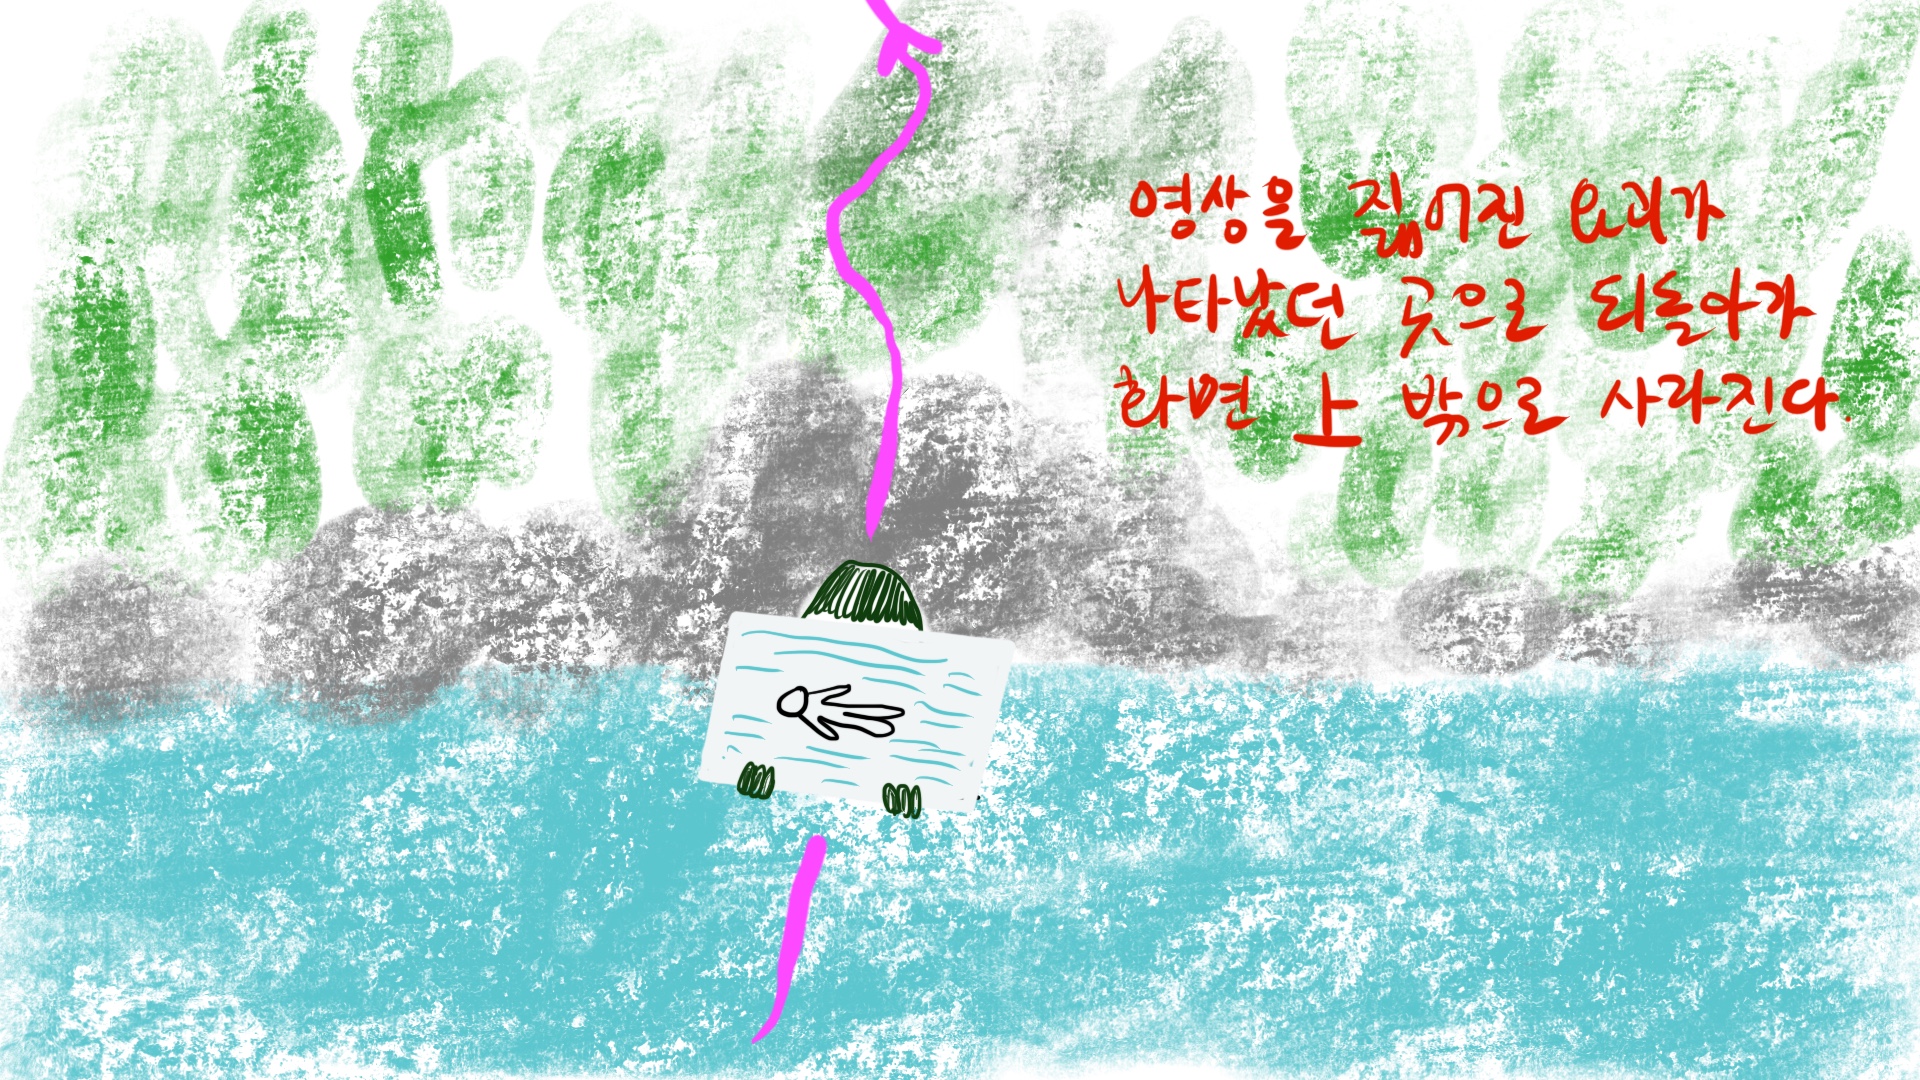 영상을 짊어진 요괴가
나타났던 곳으로 되돌아가
화면 上 밖으로 사라진다.